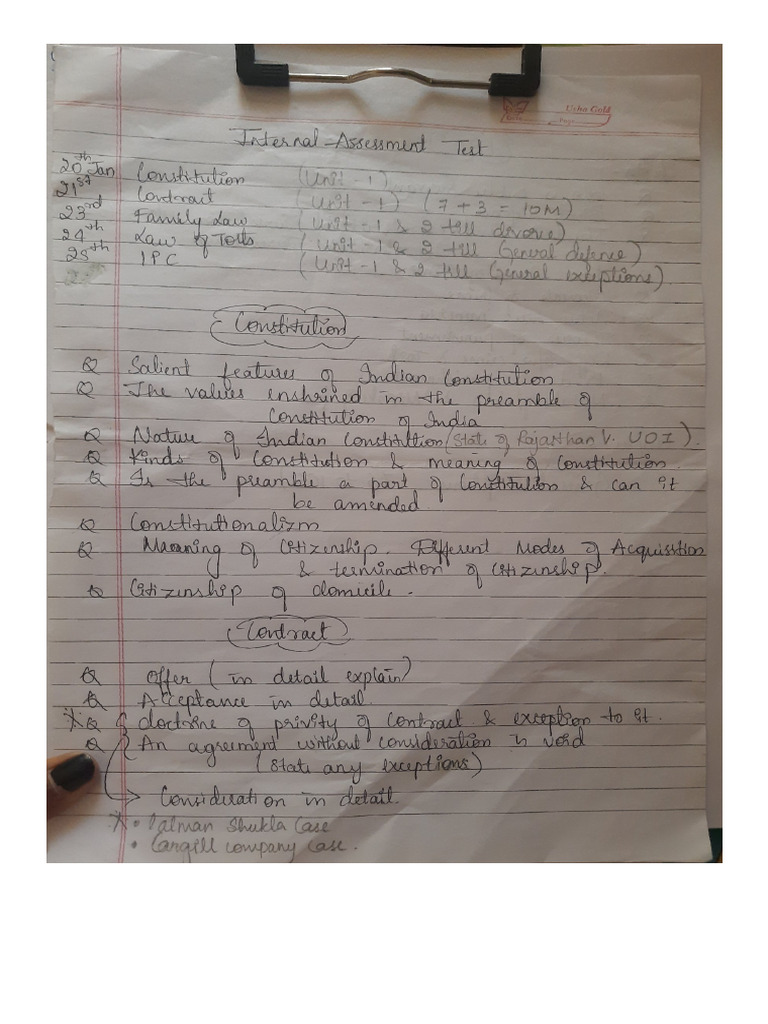 Usha Gold
Page
Internal-Assessment Test
20th Jan Constitution (Unit-1)
21st Contract (Unit-1) (7+3=10M)
23rd Family Law (Unit-1 & 2 till divorce)
24th Law of Torts (Unit-1 & 2 till General defence)
25th IPC (Unit-1 & 2 till General exceptions)
Constitution
Q Salient features of Indian Constitution
Q The values enshrined in the preamble of
Constitution of India
Q Nature of Indian Constitution (State of Rajasthan V. UOI).
Q Kinds of Constitution & meaning of Constitution.
Q Is the preamble a part of Constitution & can it
be amended.
Q Constitutionalism
Q Meaning of Citizenship. Different Modes of Acquisition
& termination of Citizenship.
Q Citizenship of domicile.
Contract
Q Offer (in detail explain)
Q Acceptance in detail.
Q doctrine of privity of contract & exception to it.
Q An agreement without consideration is void
(State any exceptions)
Consideration in detail.
• Lalman Shukla Case
• Cargill company Case.